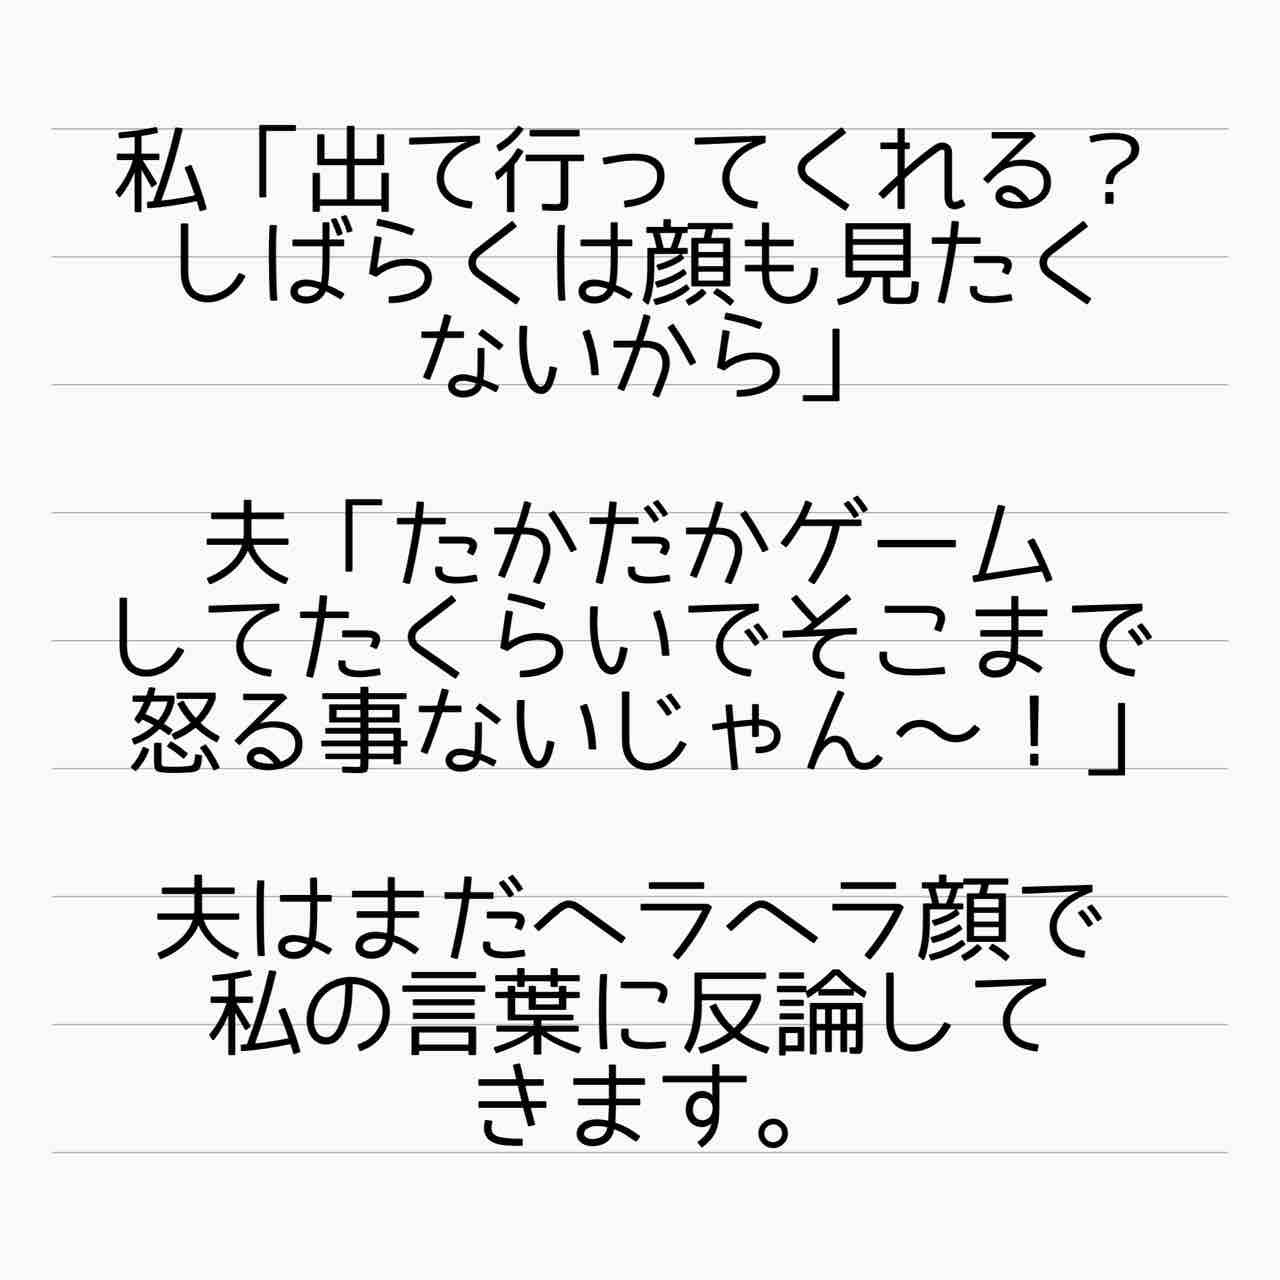 私「出て行ってくれる？
しばらくは顔も見たく
ないから」
夫「たかだかゲーム
してたくらいでそこまで
怒る事ないじゃん〜！」
夫はまだヘラヘラ顔で
私の言葉に反論して
きます。